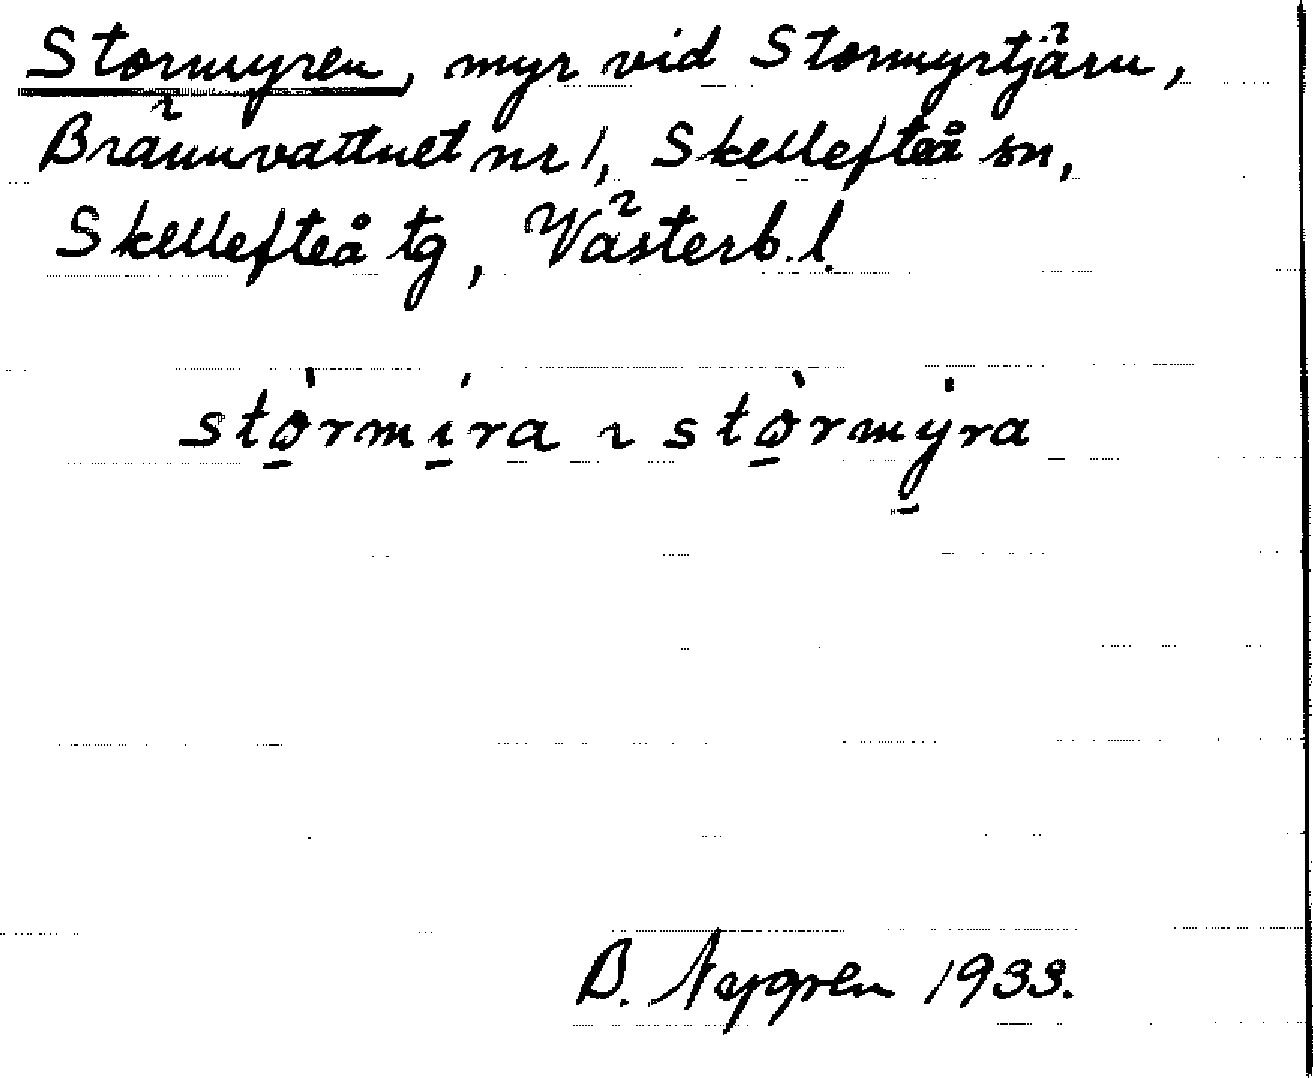 Stormyren, myr vid Stormyrtjärn,
Brännvattnet nr 1, Skellefteå sn,
Skellefteå tg, Västerb. l.
stò̲rmí̲ra ~ stò̲rmý̲ra
B. Nygren 1933.